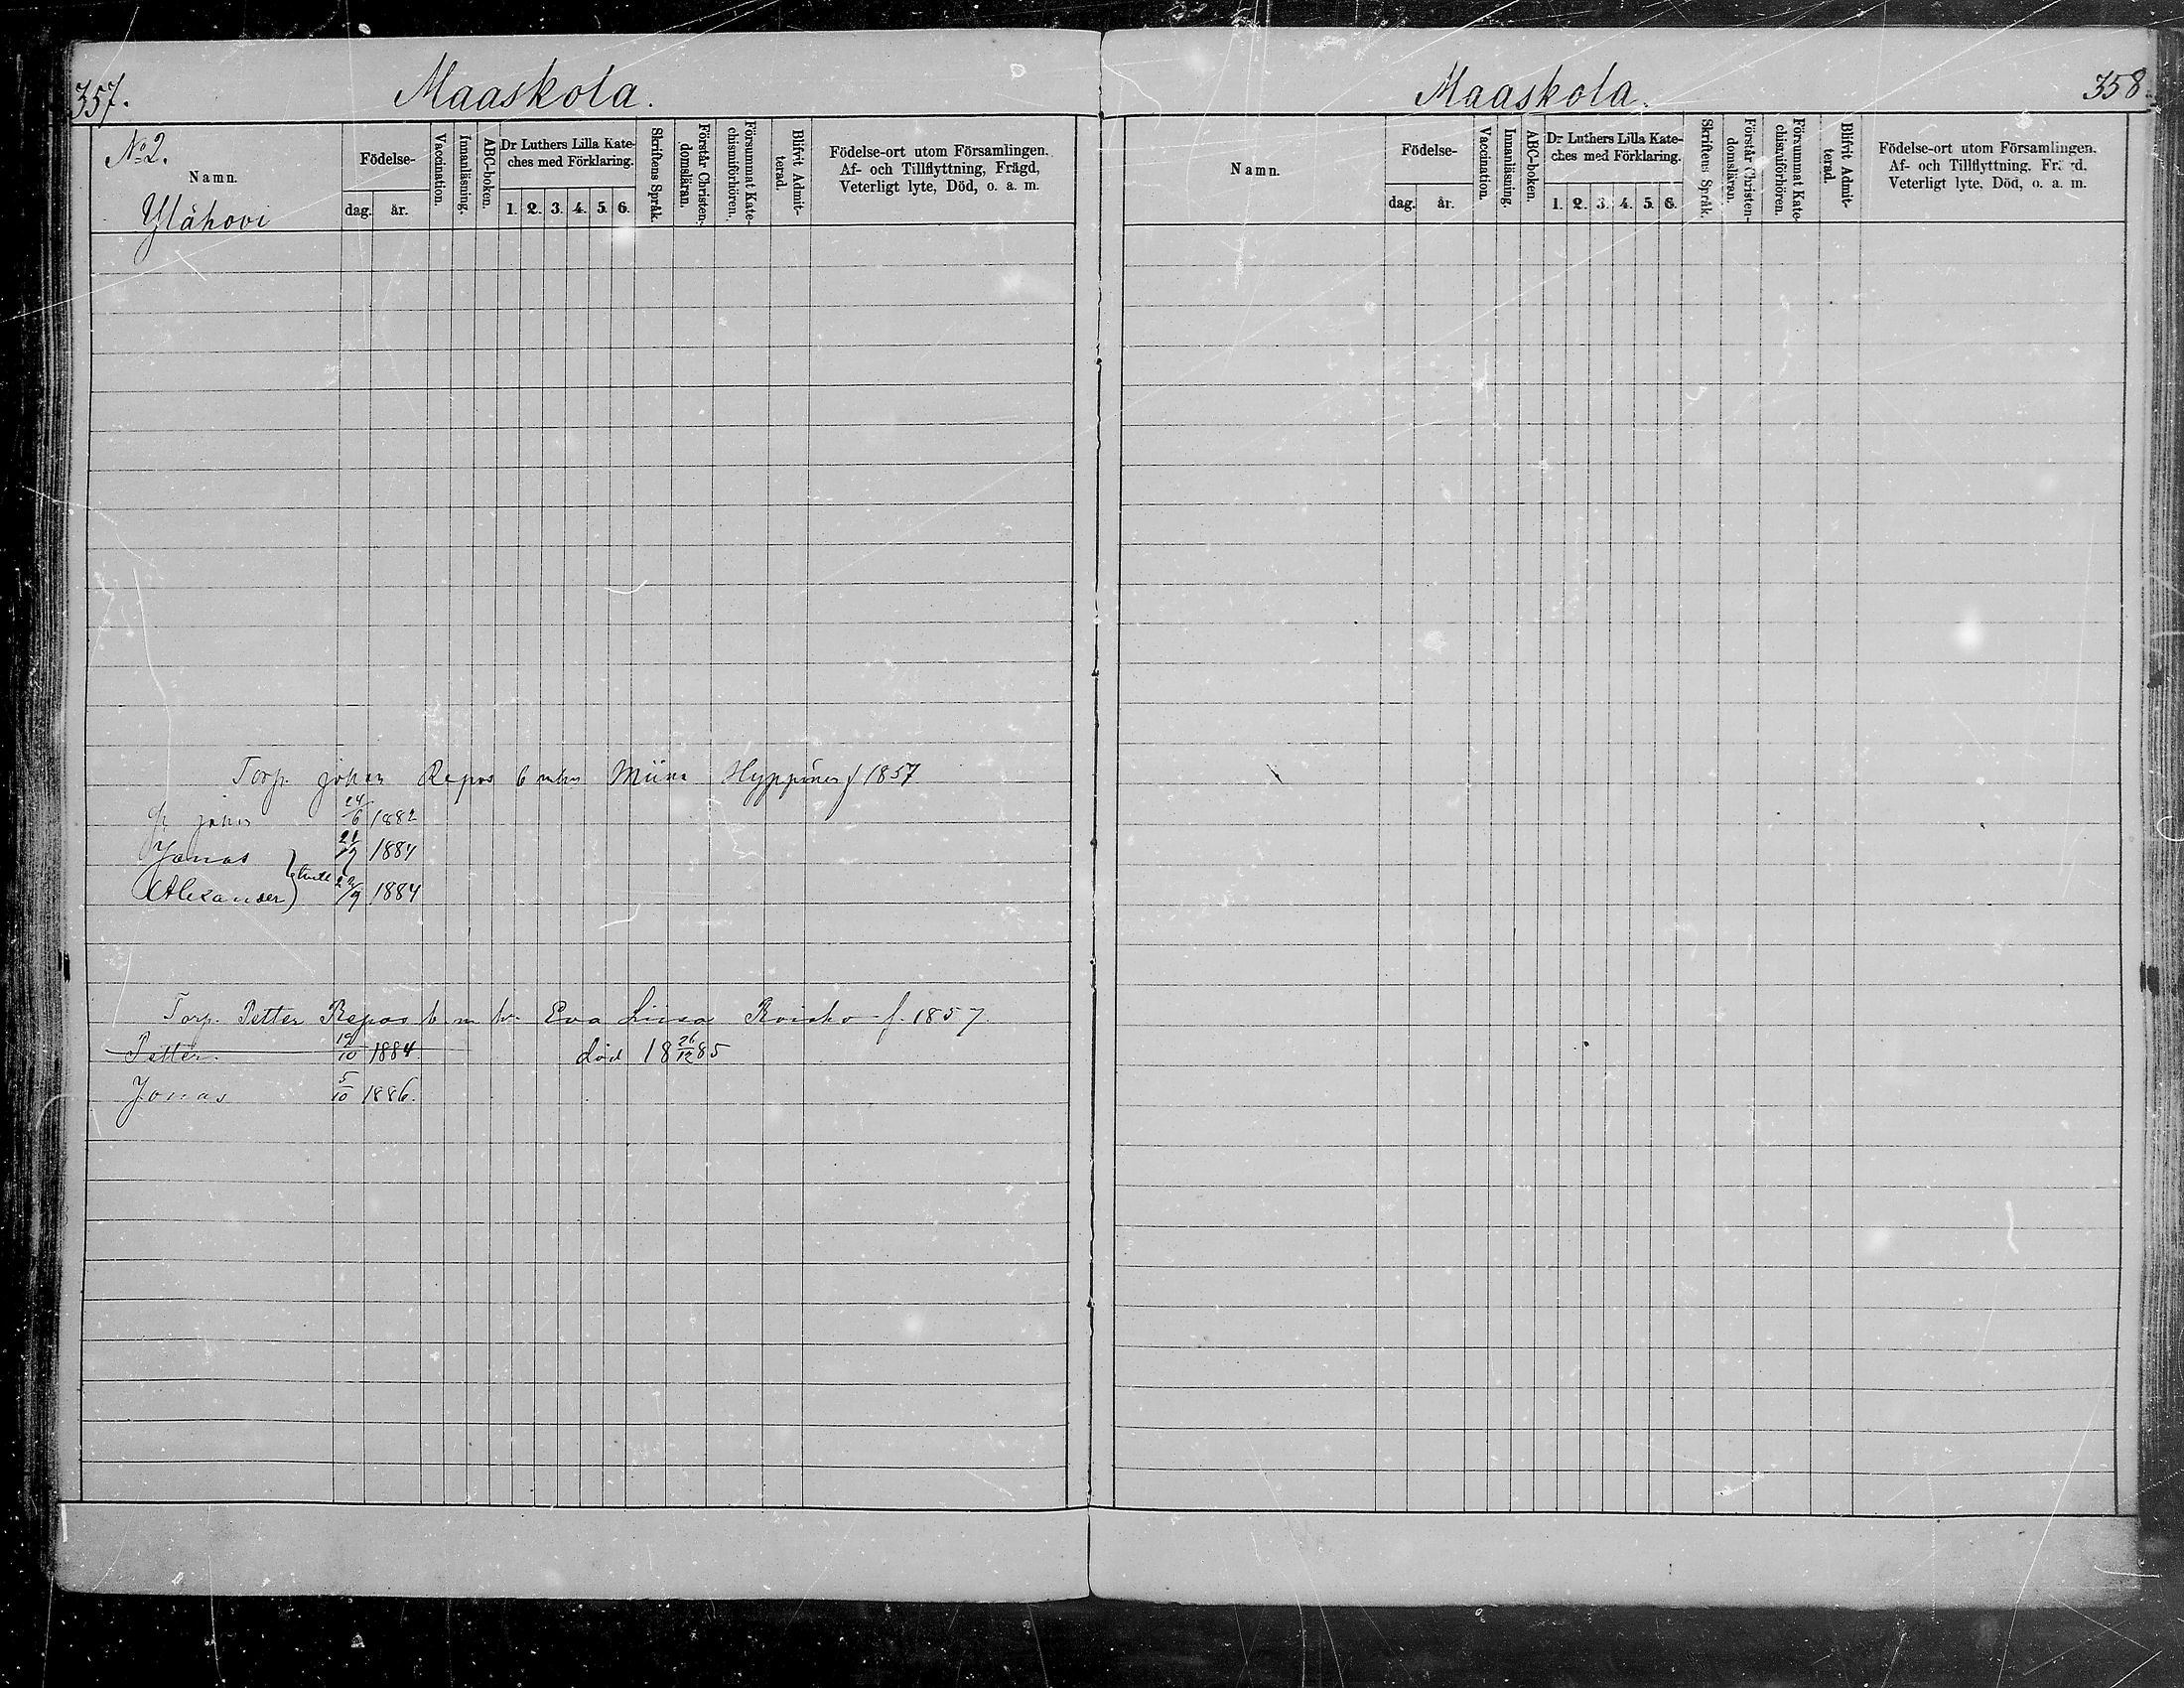 357.
Maaskola.
No 2.
Namn.
Ylähovi
Födelse-
dag. år.
Vaccination.
Innanläsning.
ABC-boken.
Dr Luthers Lilla Kate-
ches med Förklaring.
1. 2. 3. 4. 5. 6.
Skriftens Språk.
Förstår Christen-
domsläran.
Försummat Kate-
chismiförhören.
Blifvit Admit-
terad.
Födelse-ort utom Församlingen.
Af- och Tillflyttning, Frägd,
Veterligt lyte, Död, o. a. m.
Torp. Johan Repos Miina Hyppönen f 1857
24/6 1882
Jonas 1884
Alexander 1884
Torp. Petter Repos Eva Liisa f. 1857.
Petter. 19/10 1884 död 18 26/12 85
Jonas 5/10 1886.
Maaskola.
358.
Namn.
Födelse-
dag. år.
Vaccination.
Innanläsning.
ABC-boken.
Dr Luthers Lilla Kate-
ches med Förklaring.
1. 2. 3. 4. 5. 6.
Skriftens Språk.
Förstår Christen-
domsläran.
Försummat Kate-
chismiförhören.
Blifvit Admit-
terad.
Födelse-ort utom Församlingen.
Af- och Tillflyttning,
Veterligt lyte, Död, o. a. m.